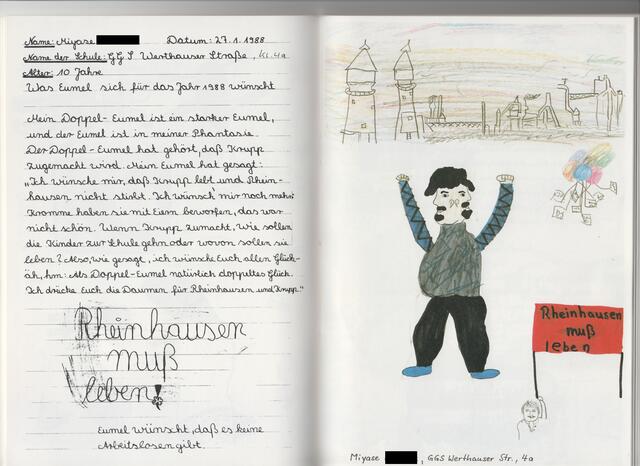 Name: Miyase Datum: 27.1.1988
Name der Schule: GGS Werthauser Straße, Kl. 4a
Alter: 10 Jahre
Was Eumel sich für das Jahr 1988 wünscht
Mein Doppel-Eumel ist ein starker Eumel,
und der Eumel ist in meiner Phantasie.
Der Doppel-Eumel hat gehört, daß Krupp
zugemacht wird. Mein Eumel hat gesagt:
„Ich wünsche mir, daß Krupp lebt und Rhein-
hausen nicht stirbt. Ich wünsch' mir noch mehr:
Kromme haben sie mit Eiern beworfen, das war
nicht schön. Wenn Krupp zumacht, wie sollen
die Kinder zur Schule gehn oder wovon sollen sie
leben? Also, wie gesagt, ich wünsche Euch allen Glück-
äh, hm: Als Doppel-Eumel natürlich doppeltes Glück.
Ich drücke Euch die Daumen für Rheinhausen und Krupp."
Rheinhausen
muß
leben!
Eumel wünscht, daß es keine
Arbeitslosen gibt.
Rheinhausen
muß
leben
Miyase , GGS Werthauser Str., 4a